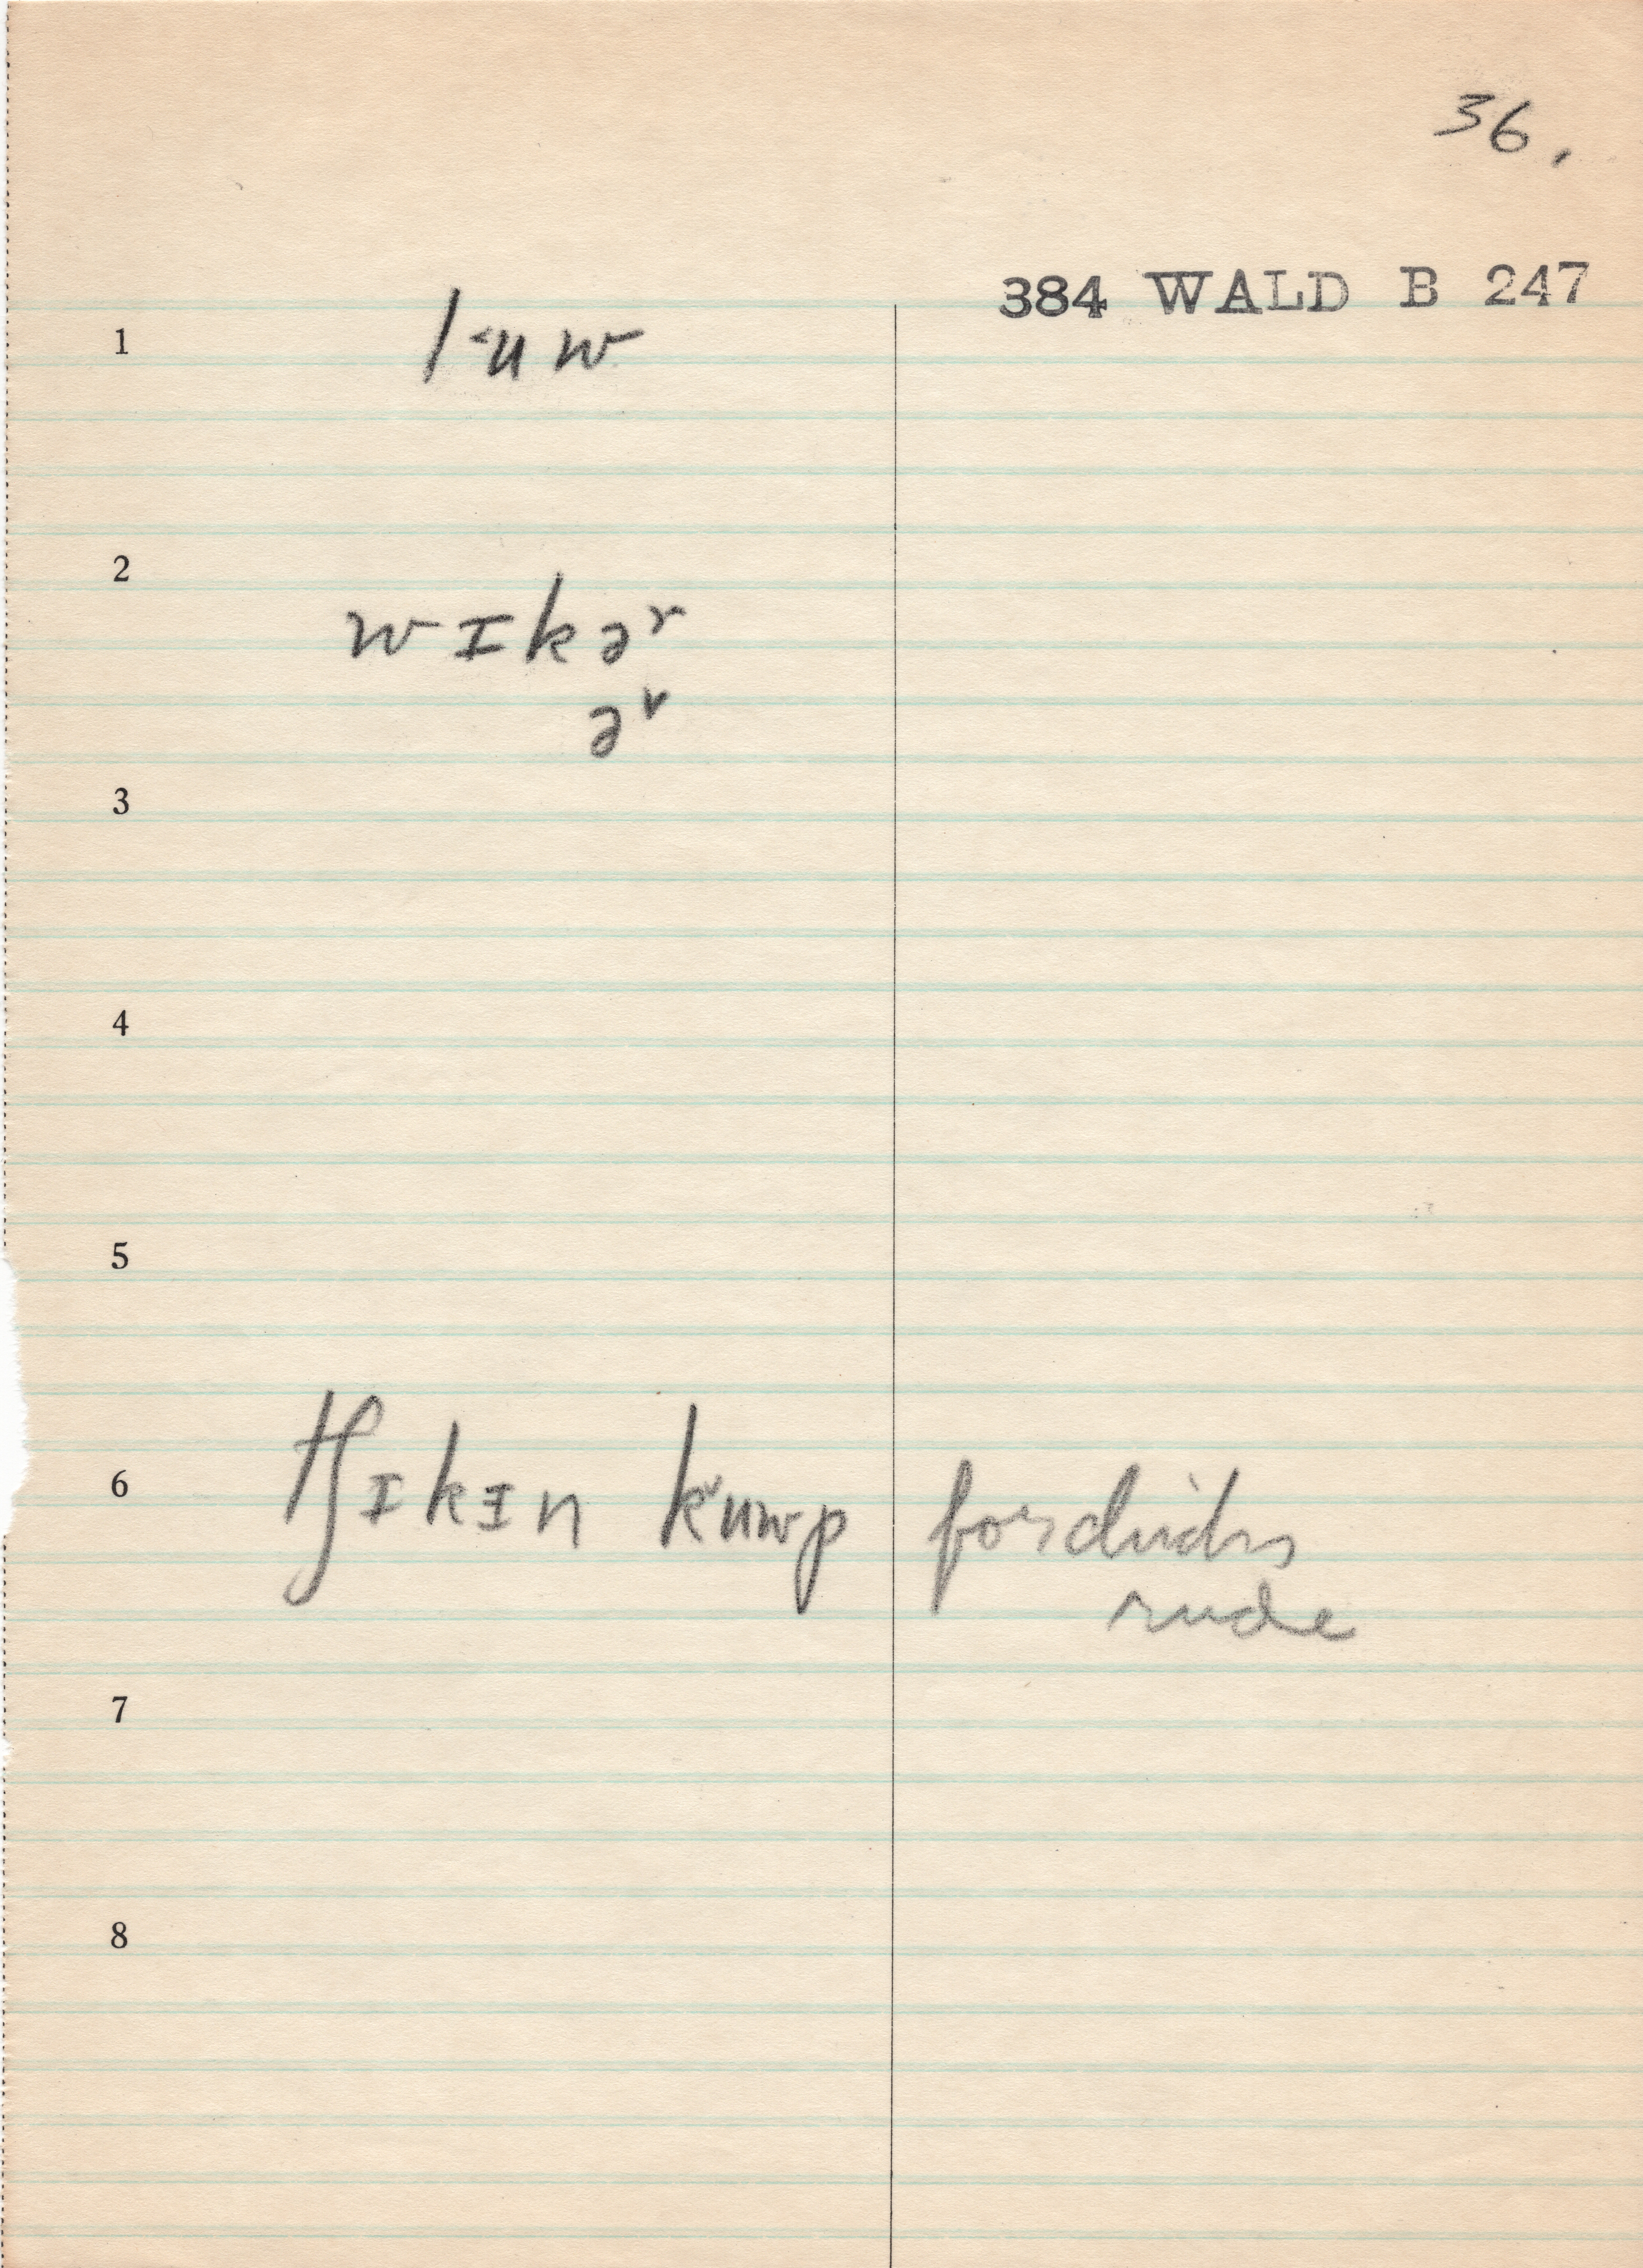 36.
384 WALD B 247
1 l˂uw
2 wɪkəʳ
əʳ
3
4
5
6 tʃɪkɪn k˅uwp for chicks
rude
7
8